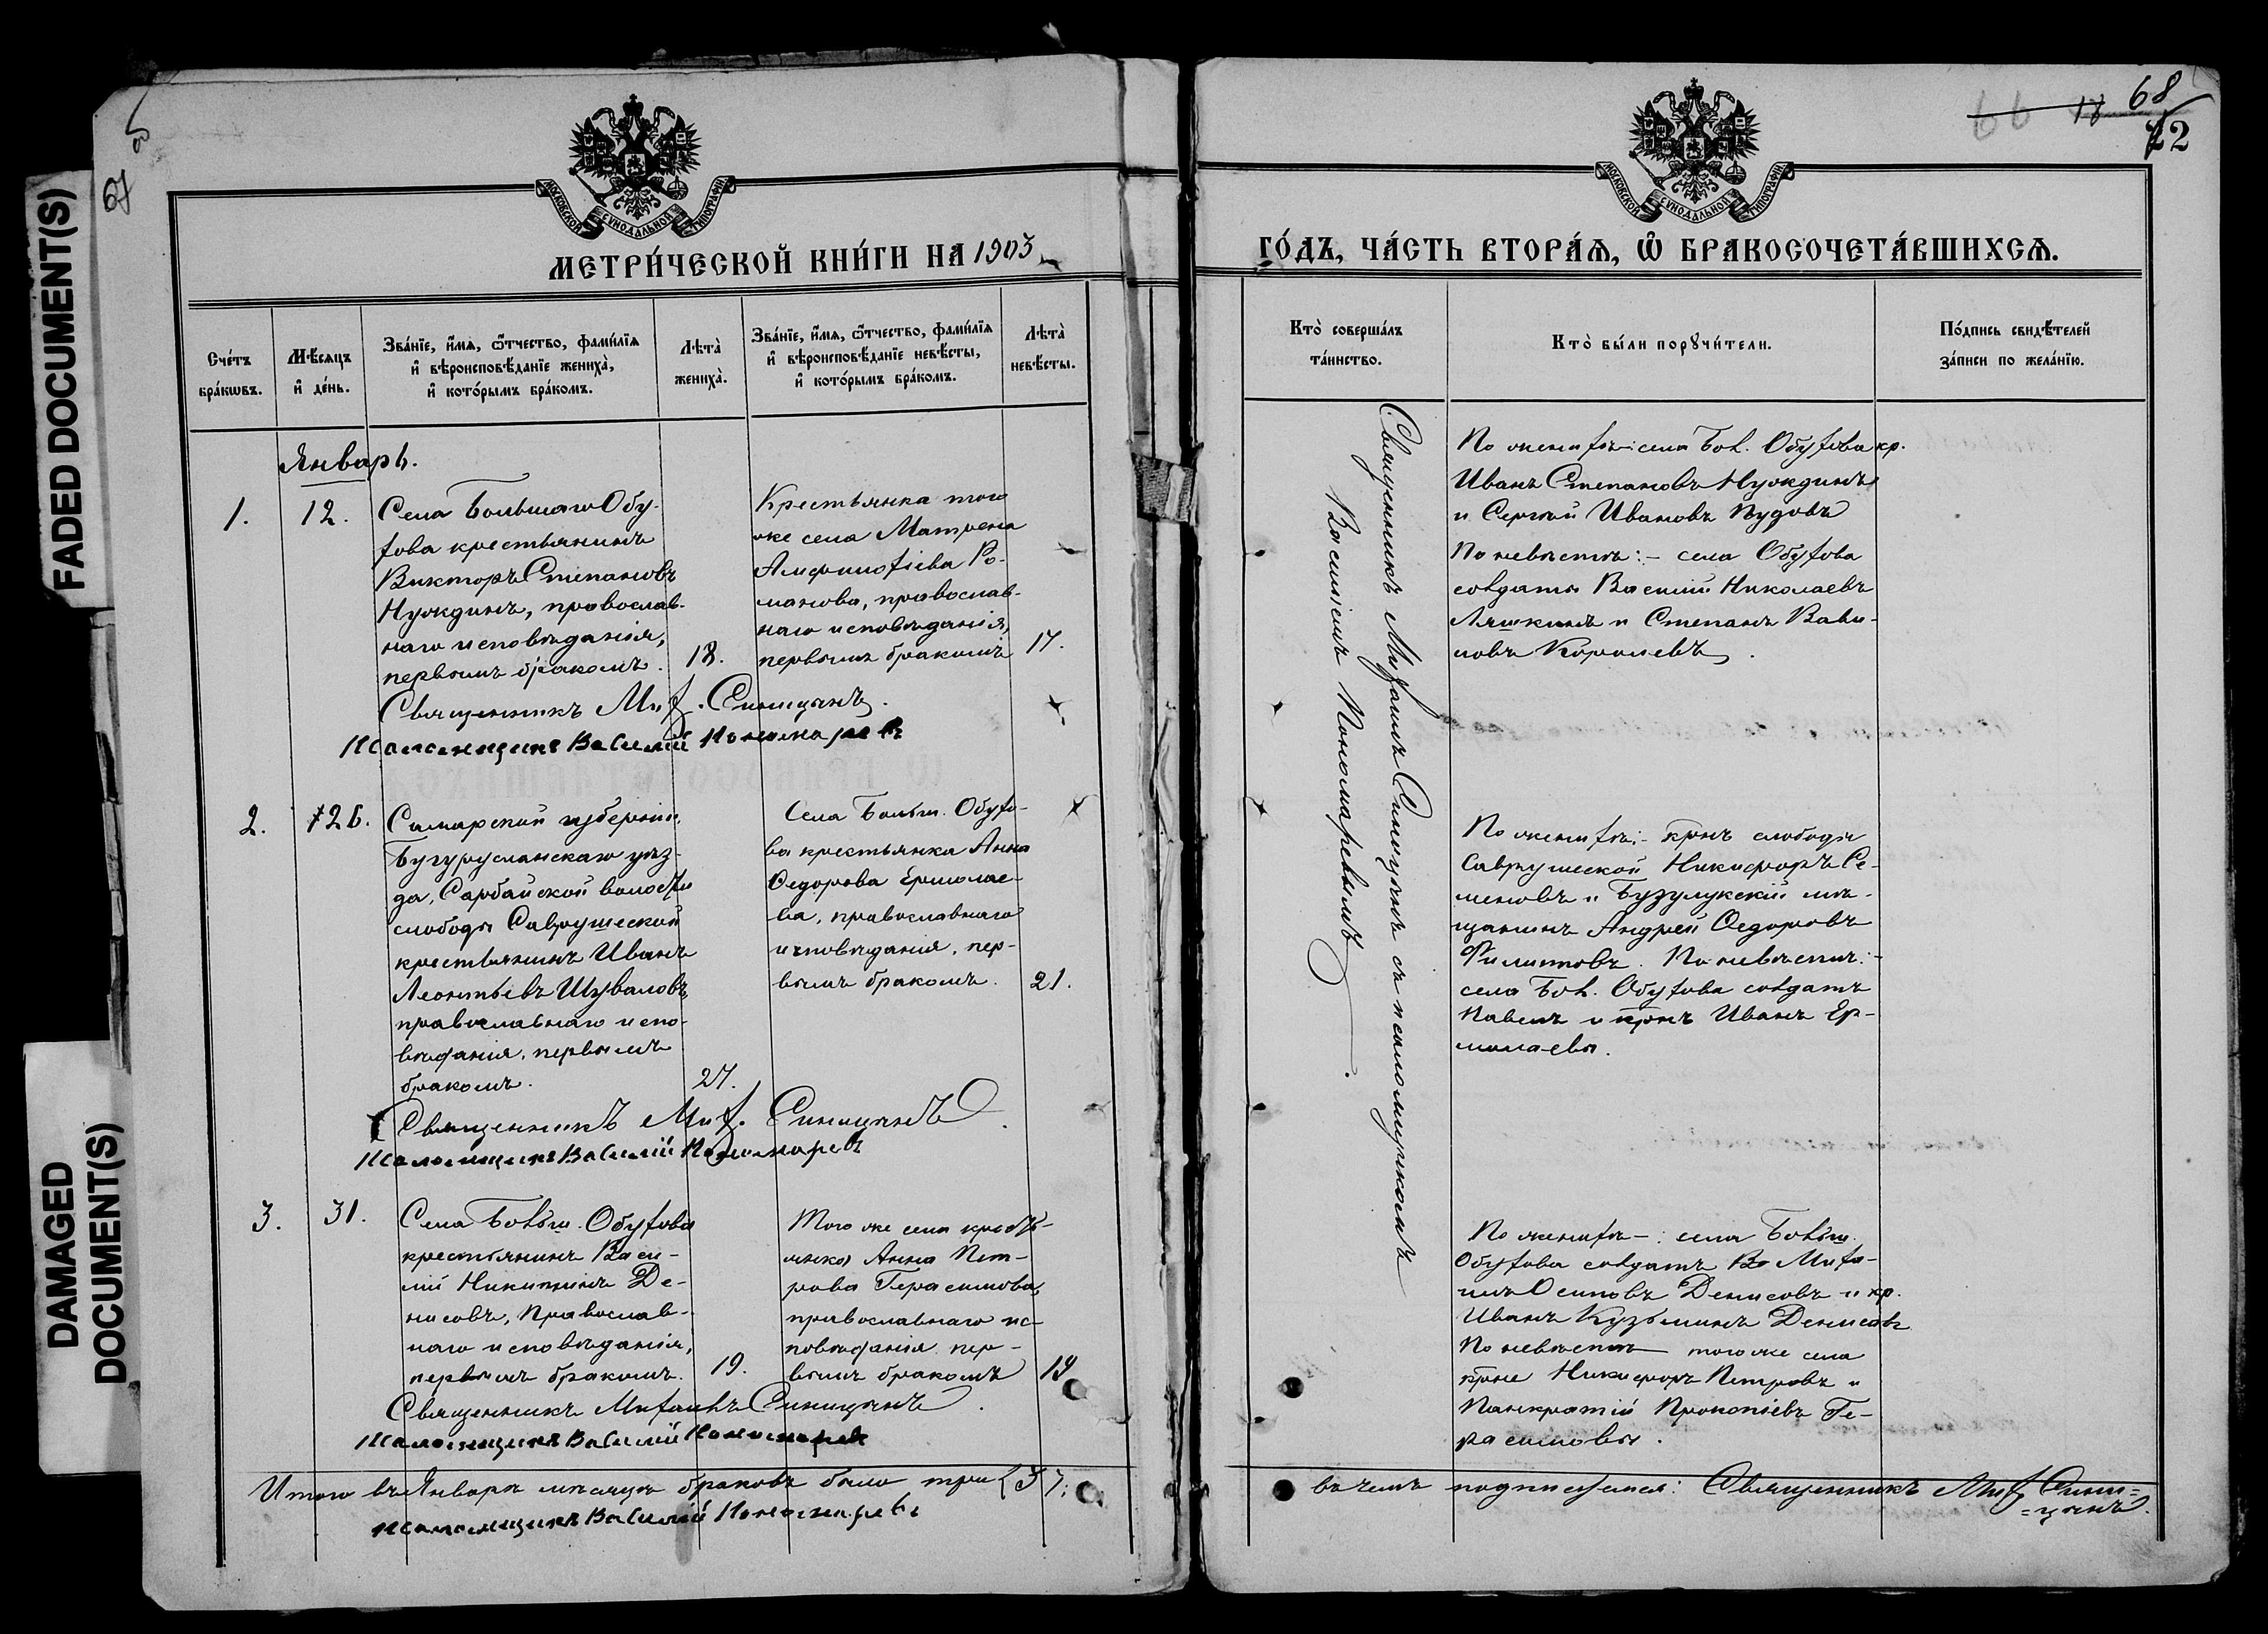 FADED DOCUMENT(S)
DAMAGED DOCUMENT(S)
67
МОСКОВСКОЙ СѴНОДАЛЬНОЙ ТИПОГРАФІИ
МЕТРИ́ЧЕСКОЙ КНИ́ГИ НА 1903
Сче́тъ бра́кωвъ.
Мѣ́сяцъ и҆ де́нь.
Зва́нїе, и҆́мѧ, ѿтчество, фами́лїѧ и҆ вѣроисповѣ́данїе жениха̀, и҆ кото́рымъ бра́комъ.
Лѣта̀ жениха̀.
Зва́нїе, и҆́мѧ, ѿтчество, фами́лїѧ и҆ вѣроисповѣ́данїе невѣ́сты, и҆ кото́рымъ бра́комъ.
Лѣта̀ невѣ́сты.
Январь.
1.
12.
Села Большаго Обу-
хова крестьянинъ
Викторъ Степановъ
Нуждинъ, православ-
наго исповѣданія,
первымъ бракомъ.
18.
Крестьянка того
же села Матрена
Амфилохіева Ро-
манова, православ-
наго исповѣданія,
первымъ бракомъ
17.
Священникъ Мих. Синицынъ.
Псаломщикъ Василій Пономаревъ
2.
26.
Самарской губерніи,
Бугурусланскаго уѣз-
да, Сарбайской волости
слободы Саврушеской
крестьянинъ Иванъ
Леонтьевъ Шуваловъ,
православнаго испо-
вѣданія, первымъ
бракомъ.
27.
Села Больш. Обухо-
ва крестьянка Анна
Ѳедорова Ермолае-
ва, православнаго
исповѣданія, пер-
вымъ бракомъ.
21.
Священникъ Мих. Синицынъ
Псаломщикъ Василій Пономаревъ
3.
31.
Села Больш. Обухова
крестьянинъ Васи-
лій Никитинъ Де-
нисовъ, Православ-
наго исповѣданія,
первымъ бракомъ.
19.
Того же села кресть-
янка Анна Пет-
рова Герасимова,
православнаго ис-
повѣданія пер-
вымъ бракомъ
Священникъ Михаилъ Синицынъ.
Псаломщикъ Василій Пономаревъ
Итого въ Январѣ мѣсяцѣ браковъ было три (3);
Псаломщикъ Василій Пономаревъ
68
22
МОСКОВСКОЙ СѴНОДАЛЬНОЙ ТИПОГРАФІИ
ГО́ДЪ, ЧА́СТЬ ВТОРА́Ѧ, Ѡ҆ БРАКОСОЧЕТА́ВШИХСѦ.
Кто̀ соверша́лъ та́инство.
Кто̀ бы́ли порꙋчи́тели.
По́дпись свидѣ́телей за́писи по жела́нїю.
Священникъ Михаилъ Синицынъ съ псаломщикомъ
Василіемъ Пономаревымъ.
По женихѣ: села Бол. Обухова кр.
Иванъ Степановъ Нуждинъ
и Сергѣй Ивановъ Пудовъ
По невѣстѣ: – села Обухова
солдаты Василій Николаевъ
Ляшкинъ и Степанъ Вави-
ловъ Королевъ.
По женихѣ: – кр̅нъ слободы
Саврушеской Никифоръ Се-
меновъ и Бузулукскій мѣ-
щанинъ Андрей Ѳедоровъ
Филиповъ. По невѣстѣ: –
села Бол. Обухова солдатъ
Павелъ и кр̅нъ Иванъ Ер-
молаевы.
По женихѣ – : села Больш.
Обухова солдатъ Миха-
илъ Осиповъ Денисовъ и кр.
Иванъ Кузьминъ Денисовъ
По невѣстѣ – того же села
кр̅не Никифоръ Петровъ и
Панкратій Прокопіевъ Ге-
расимовы.
въ чемъ подписуемся: Священникъ Мих. Сини=
=цынъ.